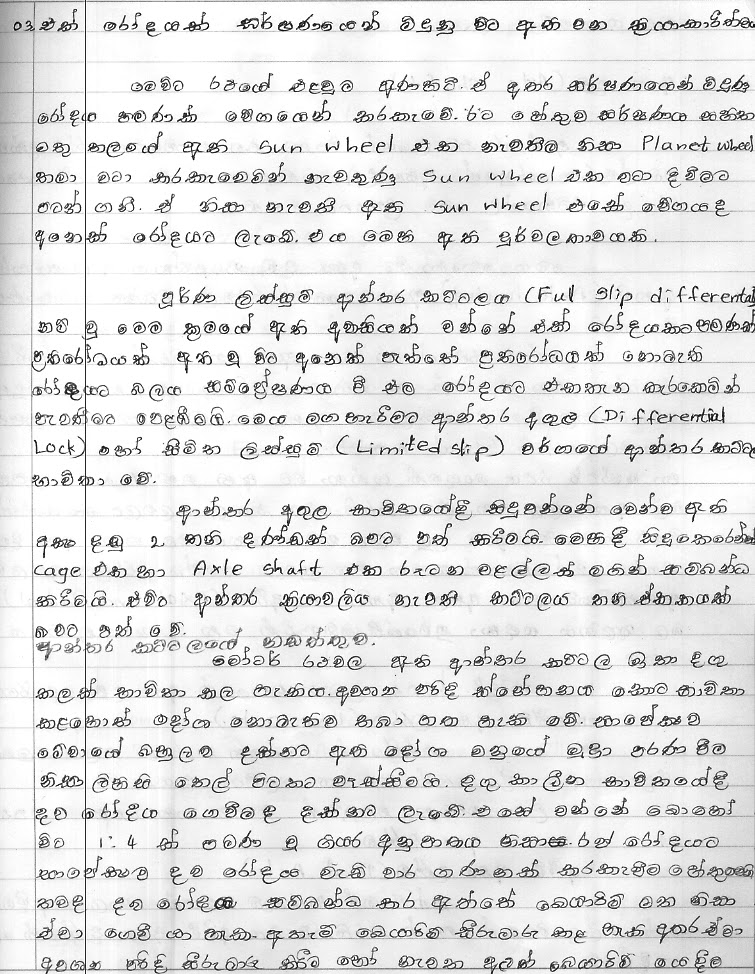 03. එක් රෝදයක් ඝර්ෂණයෙන් මිදුනු විට ඇති වන ක්‍රියාකාරීත්වය
මෙවිට රථයේ එළවුම අණහිටී. ඒ අතර ඝර්ෂණයෙන් මිදුණු
රෝදය පමණක් වේගයෙන් කරකැවේ. ඊට හේතුව ඝර්ෂණය සහිත
මතු තලයේ ඇති Sun wheel එක නැවතීම නිසා Planet wheel
තමා වටා කරකැවෙමින් නැවතුණු Sun wheel එක වටා දිවීමට
පටන් ගනී. ඒ නිසා නැවතී ඇති Sun wheel එකේ වේගයද
අනෙක් රෝදයට ලැබේ. එය මෙහි ඇති දුර්වලතාවයකි.
පූර්ණ ලිස්සුම් ආන්තර කට්ටලය (Ful Slip differental
නම් වූ මෙම ක්‍රමයේ ඇති අවාසියක් වන්නේ එක් රෝදයකට පමණක්
ප්‍රතිරෝධයක් ඇති වූ විට අනෙක් පැත්තේ ප්‍රතිරෝධයක් නොමැති
රෝදයට බලය සම්ප්‍රේෂණය වී එම රෝදයට එකතැන කැරකෙමින්
පැවතීමට පෙළඹීමයි. මෙය මගහැරීමට ආන්තර අගුල (Differential
Lock) හෝ සීමිත ලිස්සුම් (Limited slip) වර්ගයේ ආන්තර කට්ටල
භාවිතා වේ.
ආන්තර අගුල භාවිතයේදී සිදුවන්නේ මෙන්ම ඇති
අක්ෂ දඬු 2 තනි දණ්ඩක් බවට පත් කිරීමයි. මෙහිදී සිදුකෙරෙන්නේ
Cage එක හා Axle shaft එක රූටන මළල්ලක් මගින් සම්බන්ධ
කිරීමයි. එවිට ආන්තර ක්‍රියාවලිය නැවතී කට්ටලය තනි ඒකකයක්
බවට පත් වේ.
ආන්තර කට්ටලයේ නඩත්තුව.
මෝටර් රථවල ඇති ආන්තර කට්ටල ඉතා දිගු
කලක් භාවිතා කල හැකිය. අවශ්‍ය පරිදි ස්නේහනය කොට භාවිතා
කළහොත් දෝෂ නොමැතිව තබා ගත හැකි වේ. සාපේක්ෂව
මේවායේ බහුලව දක්නට ඇති දෝෂ වනුයේ මුද්‍රා තරණ වීම
නිසා ලිහිසි තෙල් පිටතට වෑස්සීමයි. දිගු කාලීන භාවිතයේදී
දව රෝදය ගෙවීමද දක්නට ලැබේ. එසේ වන්නේ බොහෝ
විට 1:4 ක් පමණ වූ ගියර අනුපාතය නිසාය. රන් රෝදයට
සාපේක්ෂව දව රෝදය වැඩි වාර ගණනක් කරකැවීම හේතුවෙනි
තවද දව රෝදය සම්බන්ධ කර ඇත්තේ බෙයාරිම් මත නිසා
ඒවා ගෙවී යා හැක. ඇතැම් බෙයාරිම් සීරුමාරු කළ හැකි අතර ඒවා
අවශ්‍ය පරිදි සීරුමාරු කිරීම හෝ නැවත අලුත් බෙයාරිම් යෙදීම